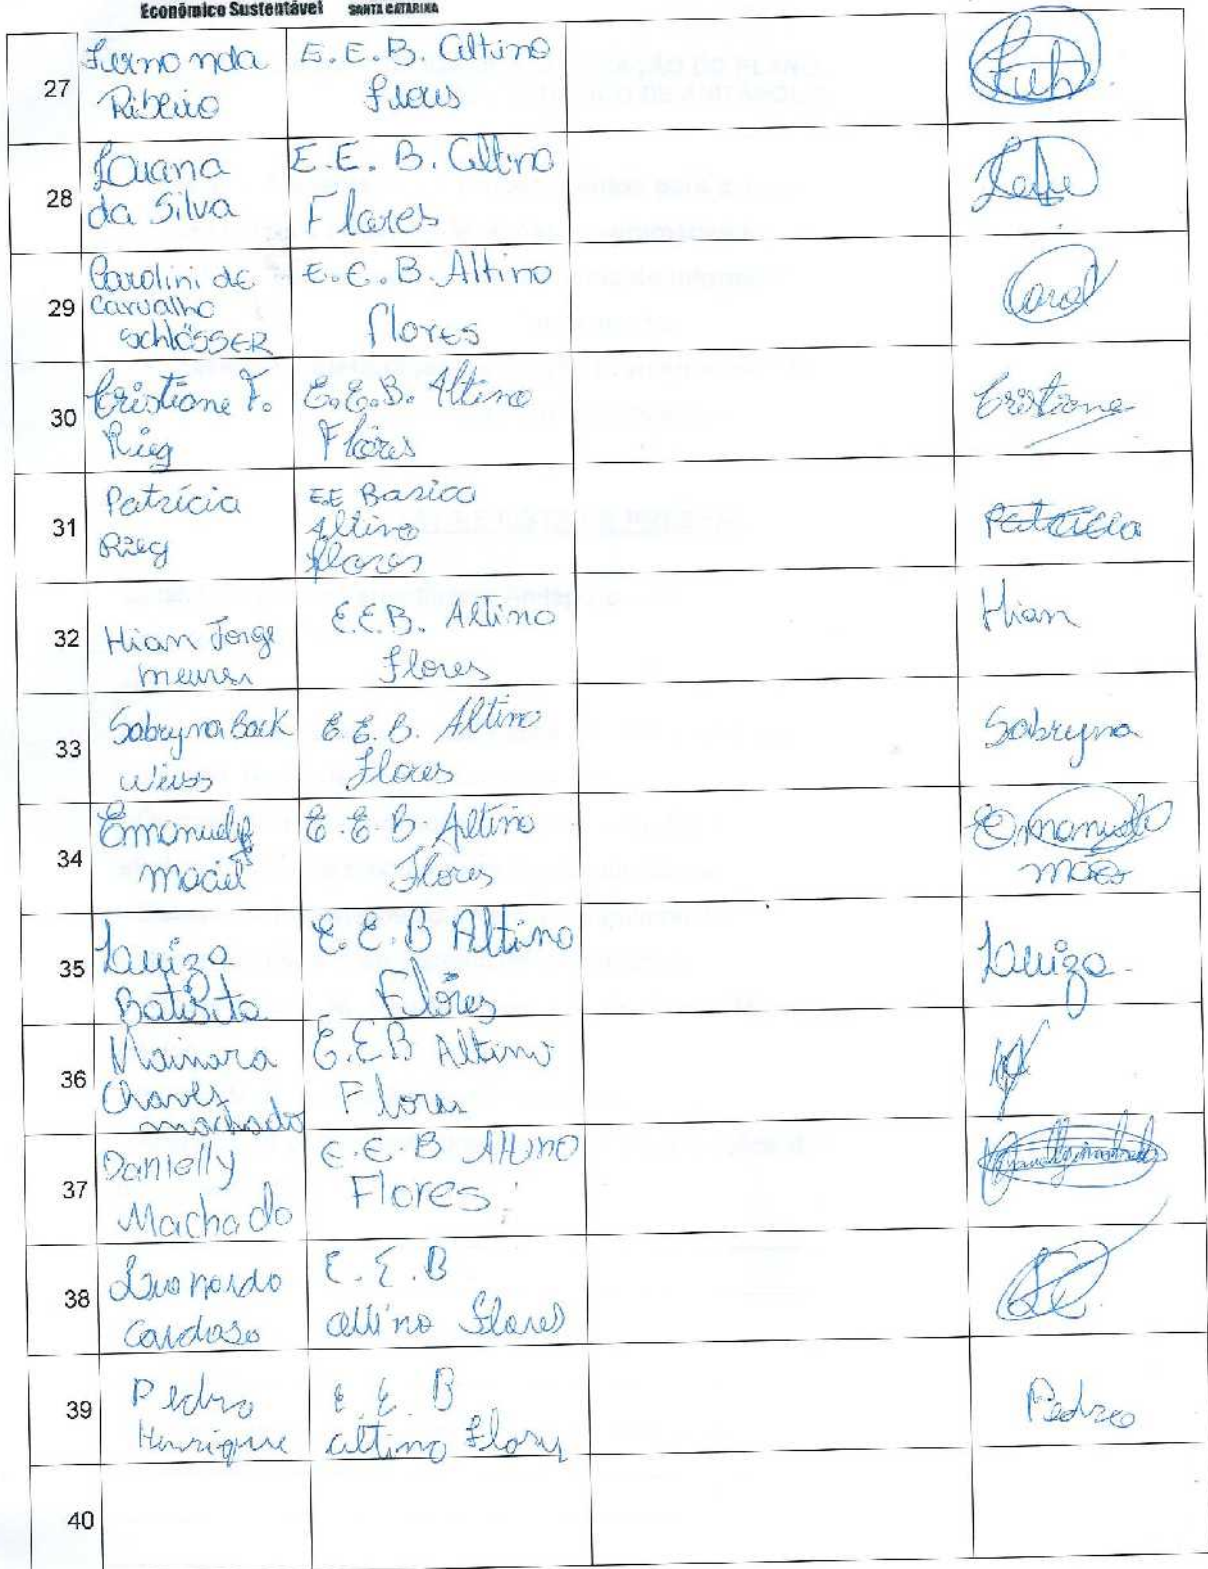 Econômico Sustentável SANTA CATARINA
27
Fernanda
Ribeiro
E.E.B. Altino
Flores
28
Luana
da Silva
E.E. B. Altino
Flores
29
Carolini de
Carvalho
Schlösser
E.E.B. Altino
Flores
Carol
30
Cristiane F.
Rieg
E.E.B. Altino
Flores
Cristiane
31
Patrícia
Rieg
E.E Basica
Altino
Flores
Patrícia
32
Hian Jorge
Meurer
E.E.B. Altino
Flores
Hian
33
Sabryna Back
Weiss
E.E.B. Altino
Flores
Sabryna
34
Emanuely
Maciel
E.E.B. Altino
Flores
Emanuely
35
Lauiza
Batista
E.E.B Altino
Flores
Lauiza
36
Mainara
Chaves
Machado
E.E.B Altino
Flores
37
Danielly
Machado
E.E.B Altino
Flores
38
Leonardo
Cardoso
E.E.B
Altino Flores
39
Pedro
Henrique
E.E.B
Altino Flores
Pedro
40